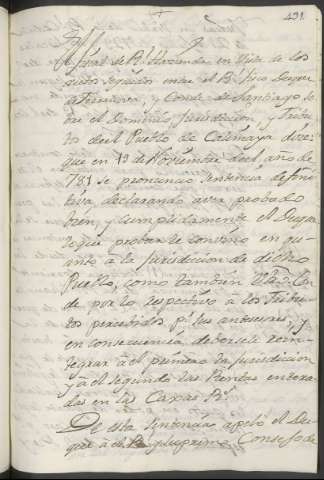 491
El Fiscal de Rl. Hacienda en Vista de los
autos seguidos entre el Rl. Fisco Duque
de Terranova, y Conde de Santiago so-
bre el Dominio, Jurisdiccion, y Tribu-
tos del Pueblo de Calimaya dize:
que en 19 de Noviembre del año de
781 se pronunció sentencia defini-
tiva, declarando aver probado
bien, y cumplidamente el Duque
lo que probar le convino en qu-
anto a la jurisdicion de dicho
Pueblo, como tambien el Con-
de por lo respectivo a los Tribu-
tos percebidos pr. sus antesores, y
en consecuencia deversele reinte-
grar à el primero la jurisdiccion
y à el segundo las Rentas entera-
das en las Caxas Rs.
De esta sentencia apeló el Du-
que à el Supremo Consejo de